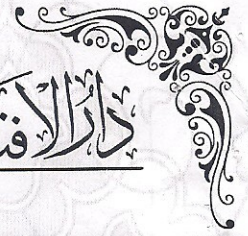 دَارُالافتَ